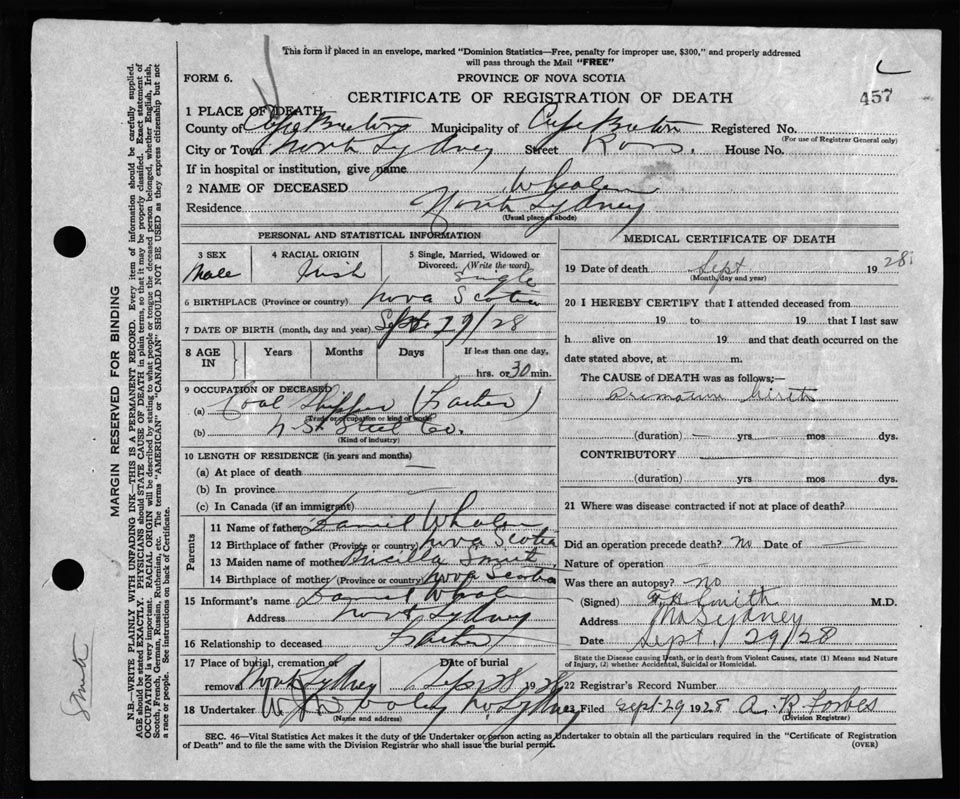 This form if placed in an envelope, marked "Dominion Statistics—Free, penalty for improper use, $300," and properly addressed
will pass through the Mail "FREE"
FORM 6. PROVINCE OF NOVA SCOTIA
CERTIFICATE OF REGISTRATION OF DEATH 457
1 PLACE OF DEATH
County of Cape Breton Municipality of Cape Breton Registered No.
(For use of Registrar General only)
City or Town North Sydney Street House No.
If in hospital or institution, give name
2 NAME OF DECEASED Whalen
Residence North Sydney
(Usual place of abode)
PERSONAL AND STATISTICAL INFORMATION
3 SEX Male
4 RACIAL ORIGIN Irish
5 Single, Married, Widowed or Divorced. (Write the word) Single
6 BIRTHPLACE (Province or country) Nova Scotia
7 DATE OF BIRTH (month, day and year) Sept /28
8 AGE IN Years Months Days If less than one day, hrs. or 30 min.
9 OCCUPATION OF DECEASED
(a) Coal Shipper (Father)
Trade, occupation or kind of work
(b) N.S. Steel Co.
(Kind of industry)
10 LENGTH OF RESIDENCE (in years and months)
(a) At place of death
(b) In province
(c) In Canada (if an immigrant)
Parents
11 Name of father Daniel Whalen
12 Birthplace of father (Province or country) Nova Scotia
13 Maiden name of mother Smith
14 Birthplace of mother (Province or country) Nova Scotia
15 Informant's name Daniel Whalen
Address North Sydney
16 Relationship to deceased Father
17 Place of burial, cremation or removal North Sydney Date of burial Sept 28 1928
18 Undertaker No. Sydney
(Name and address)
MEDICAL CERTIFICATE OF DEATH
19 Date of death Sept 1928
(Month, day and year)
20 I HEREBY CERTIFY that I attended deceased from
19 to 19 that I last saw
h alive on 19 and that death occurred on the
date stated above, at m.
The CAUSE of DEATH was as follows;—
Premature birth
(duration) yrs mos dys.
CONTRIBUTORY
(duration) yrs mos dys.
21 Where was disease contracted if not at place of death?
Did an operation precede death? No Date of
Nature of operation
Was there an autopsy? no
(Signed) Smith M.D.
Address No Sydney
Date Sept. 29/28
State the Disease causing Death, or in death from Violent Causes, state (1) Means and Nature
of Injury, (2) whether Accidental, Suicidal or Homicidal.
22 Registrar's Record Number
23 Filed Sept-29 1928 A. R Forbes
(Division Registrar)
SEC. 46—Vital Statistics Act makes it the duty of the Undertaker or person acting as Undertaker to obtain all the particulars required in the "Certificate of Registration
of Death" and to file the same with the Division Registrar who shall issue the burial permit. (OVER)
MARGIN RESERVED FOR BINDING
N.B.—WRITE PLAINLY WITH UNFADING INK—THIS IS A PERMANENT RECORD. Every item of information should be carefully supplied.
AGE should be stated EXACTLY. PHYSICIANS should STATE CAUSE OF DEATH in plain terms, so that it may be properly classified. Exact statement of
OCCUPATION is very important. RACIAL ORIGIN will be described by stating to what people or tongue the deceased person belonged, whether English, Irish,
Scotch, French, German, Russian, Ruthenian, etc. The terms "AMERICAN" or "CANADIAN" SHOULD NOT BE USED as they express citizenship but not
a race or people. See instructions on back of Certificate.
Smith